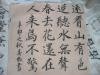 遠看山有色
近聽水無聲
春去花還在
人來鳥不驚